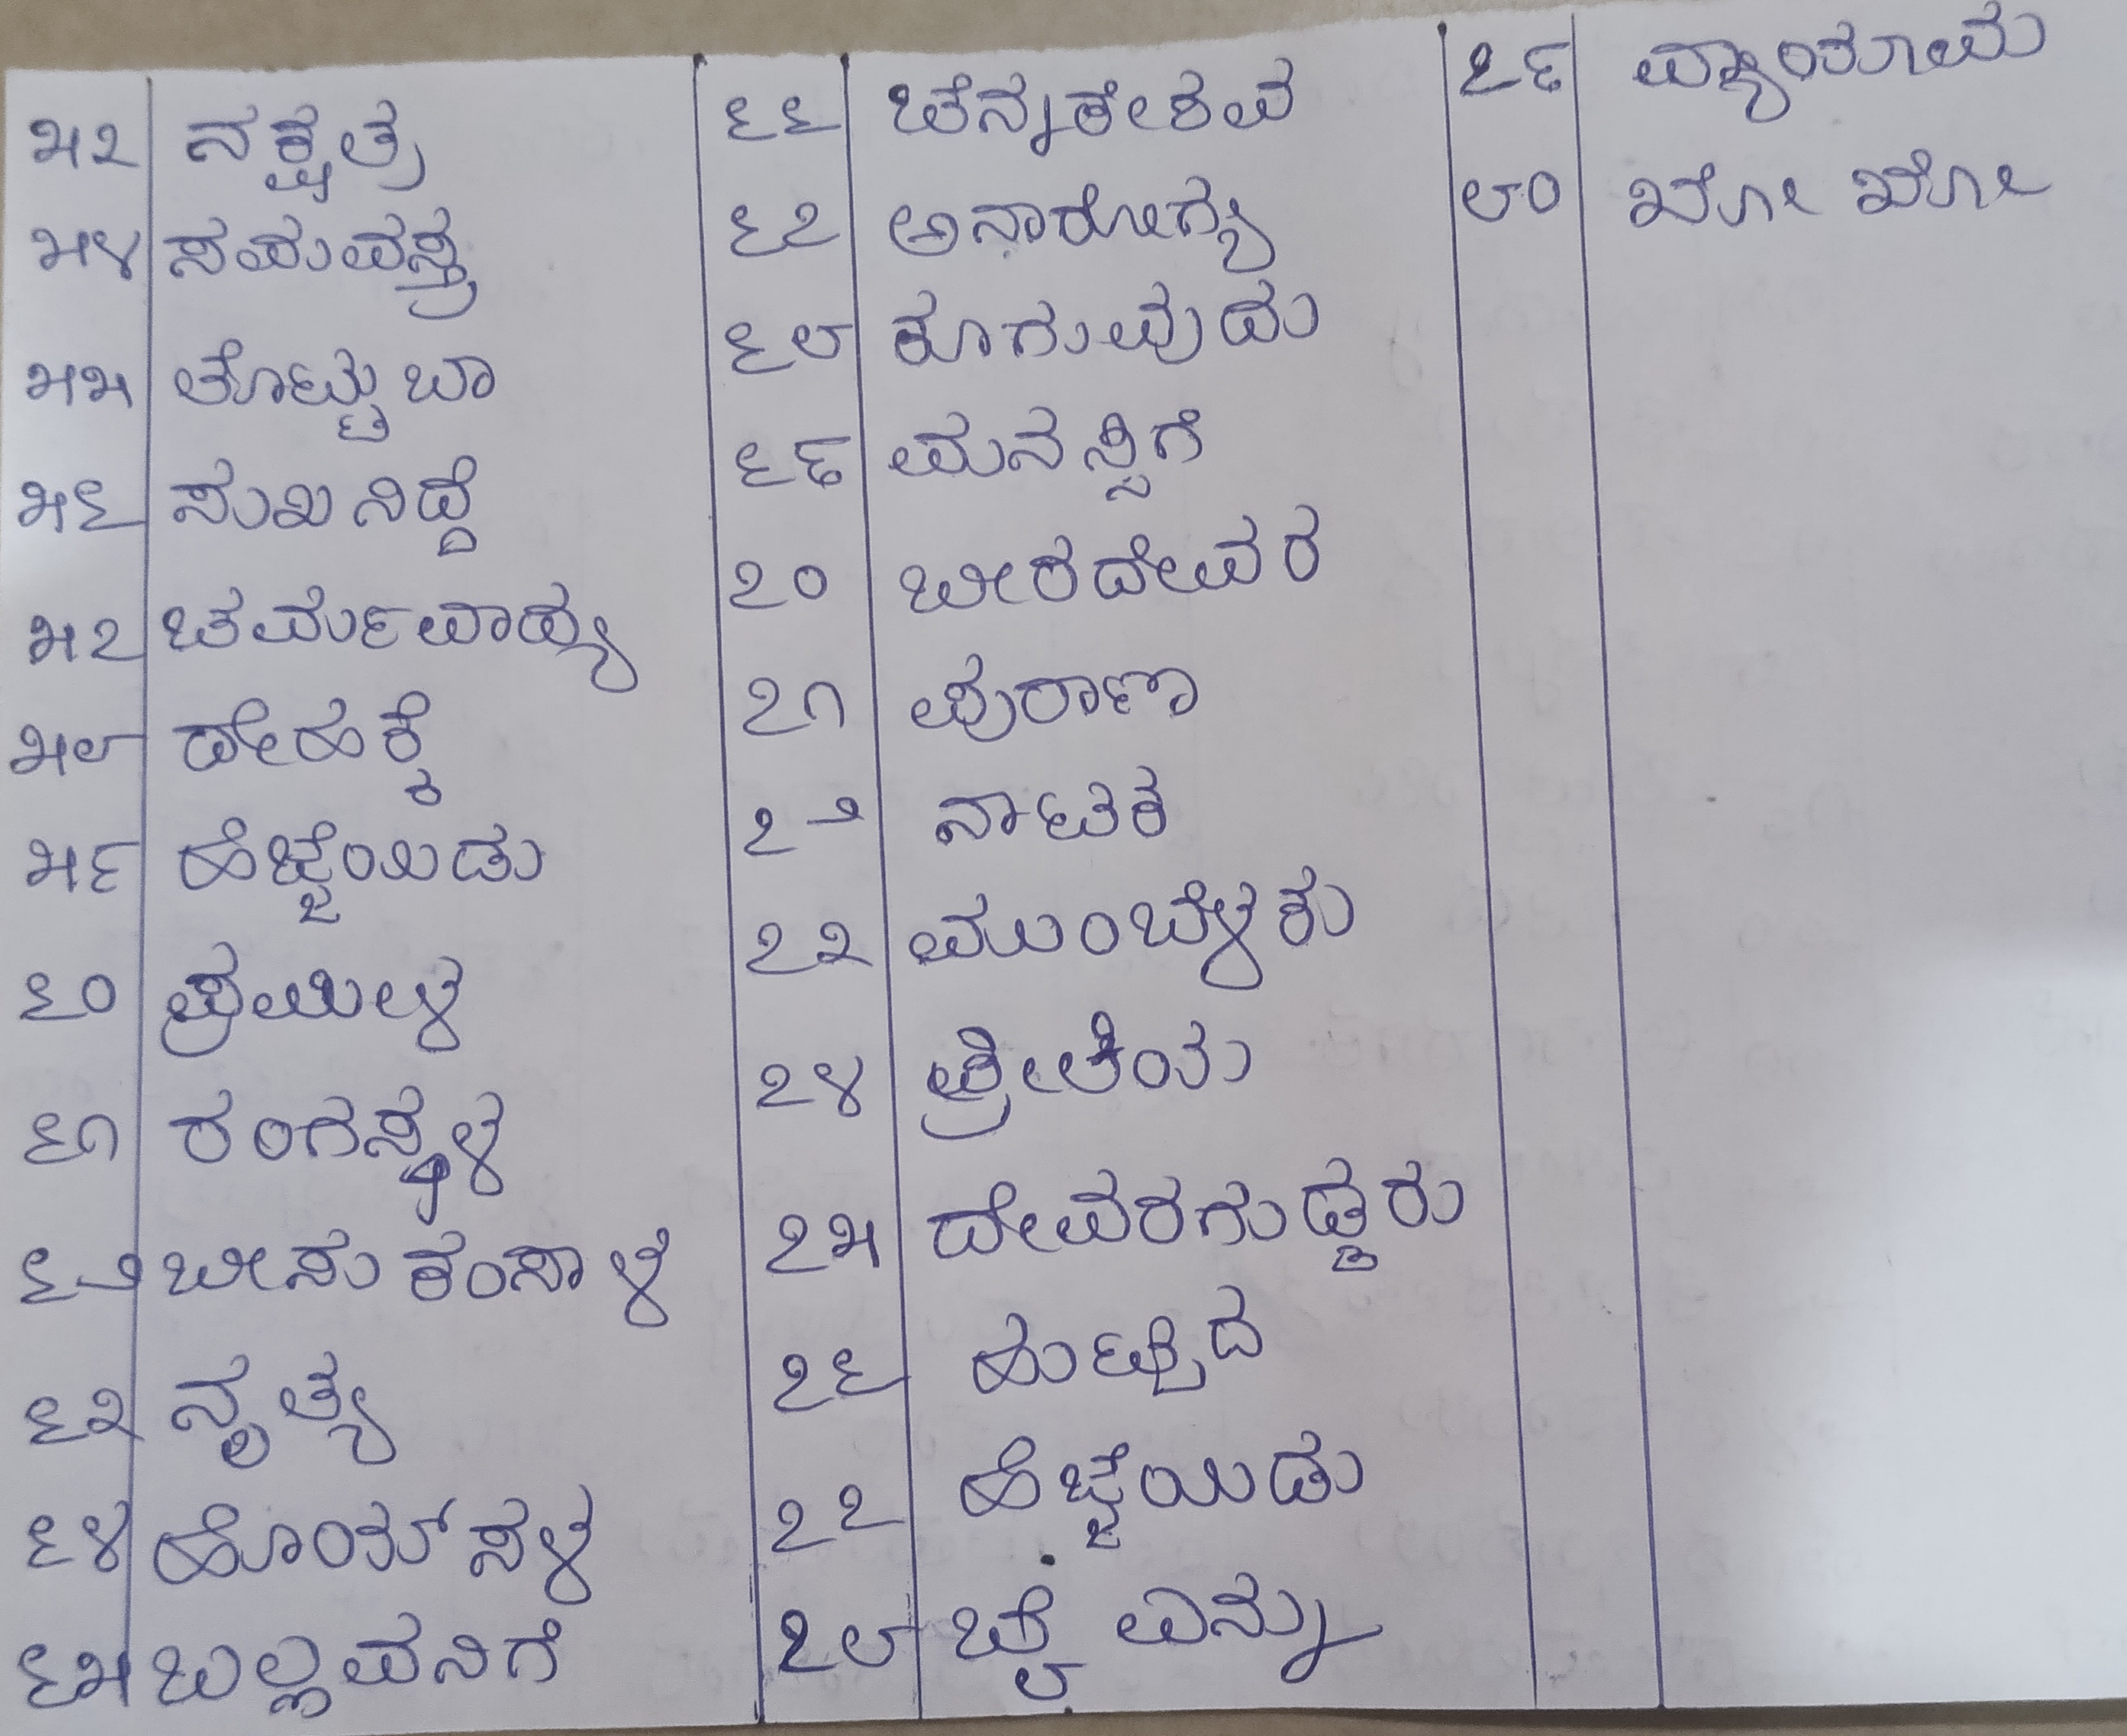 ೫೭ ನಕ್ಷತ್ರ
೫೪ ಸಮವಸ್ತ್ರ
೫೫ ತೊಟ್ಟು ಬಾ
೫೬ ಸುಖ ನಿದ್ದೆ
೫೭ ಚರ್ಮವಾದ್ಯ
೫೮ ದೇಹಕ್ಕೆ
೫೯ ಹೆಜ್ಜೆಯಿಡು
೬೦ ಪ್ರಮಿಳ
೬೧ ರಂಗಸ್ಥಳ
೬೨ ಬೀಸು ಕಂಸಾಳೆ
೬೩ ನೃತ್ಯ
೬೪ ಹೊಯ್ಸಳ
೬೫ ಬಲ್ಲವನಿಗೆ
೬೬ ಚೆನ್ನಕೇಶವ
೬೭ ಅನಾರೋಗ್ಯ
೬೮ ಕೂಗುವುದು
೬೯ ಮನಸ್ಸಿಗೆ
೭೦ ಬೀರದೇವರ
೭೧ ಪುರಾಣ
೭೨ ನಾಟಕ
೭೩ ಮುಂಬೆಳಕು
೭೪ ಪ್ರೀತಿಯ
೭೫ ದೇವರಗುಡ್ಡರು
೭೬ ಹುಟ್ಟಿದ
೭೭ ಹೆಜ್ಜೆಯಿಡು
೭೮ ಚಿಲ್ಲೆ ಎನ್ನು
೭೯ ವ್ಯಾಯಾಮ
೮೦ ಖೋ ಖೋ